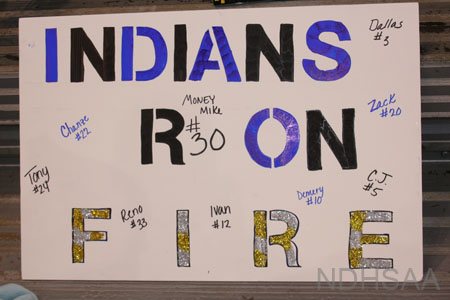 INDIANS
Dallas
#3
R ON
MONEY
Mike
#30
Chance
#22
Zack
#20
Tony
#24
C.J.
#5
Reno
#33
Ivan
#12
Demery
#10
FIRE
NDHSAA